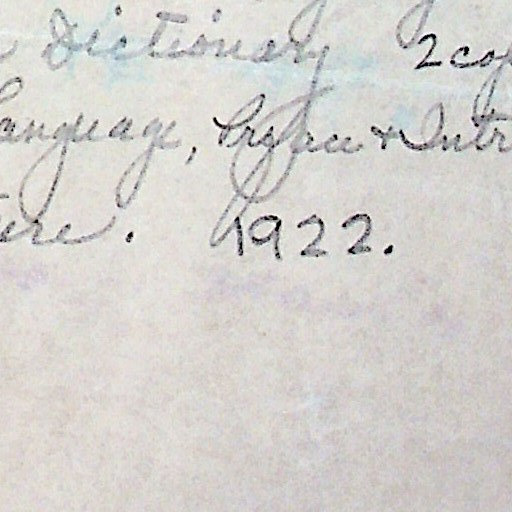 Dictionary 2 cop
Language, Preface + Intr
ture. 1922.